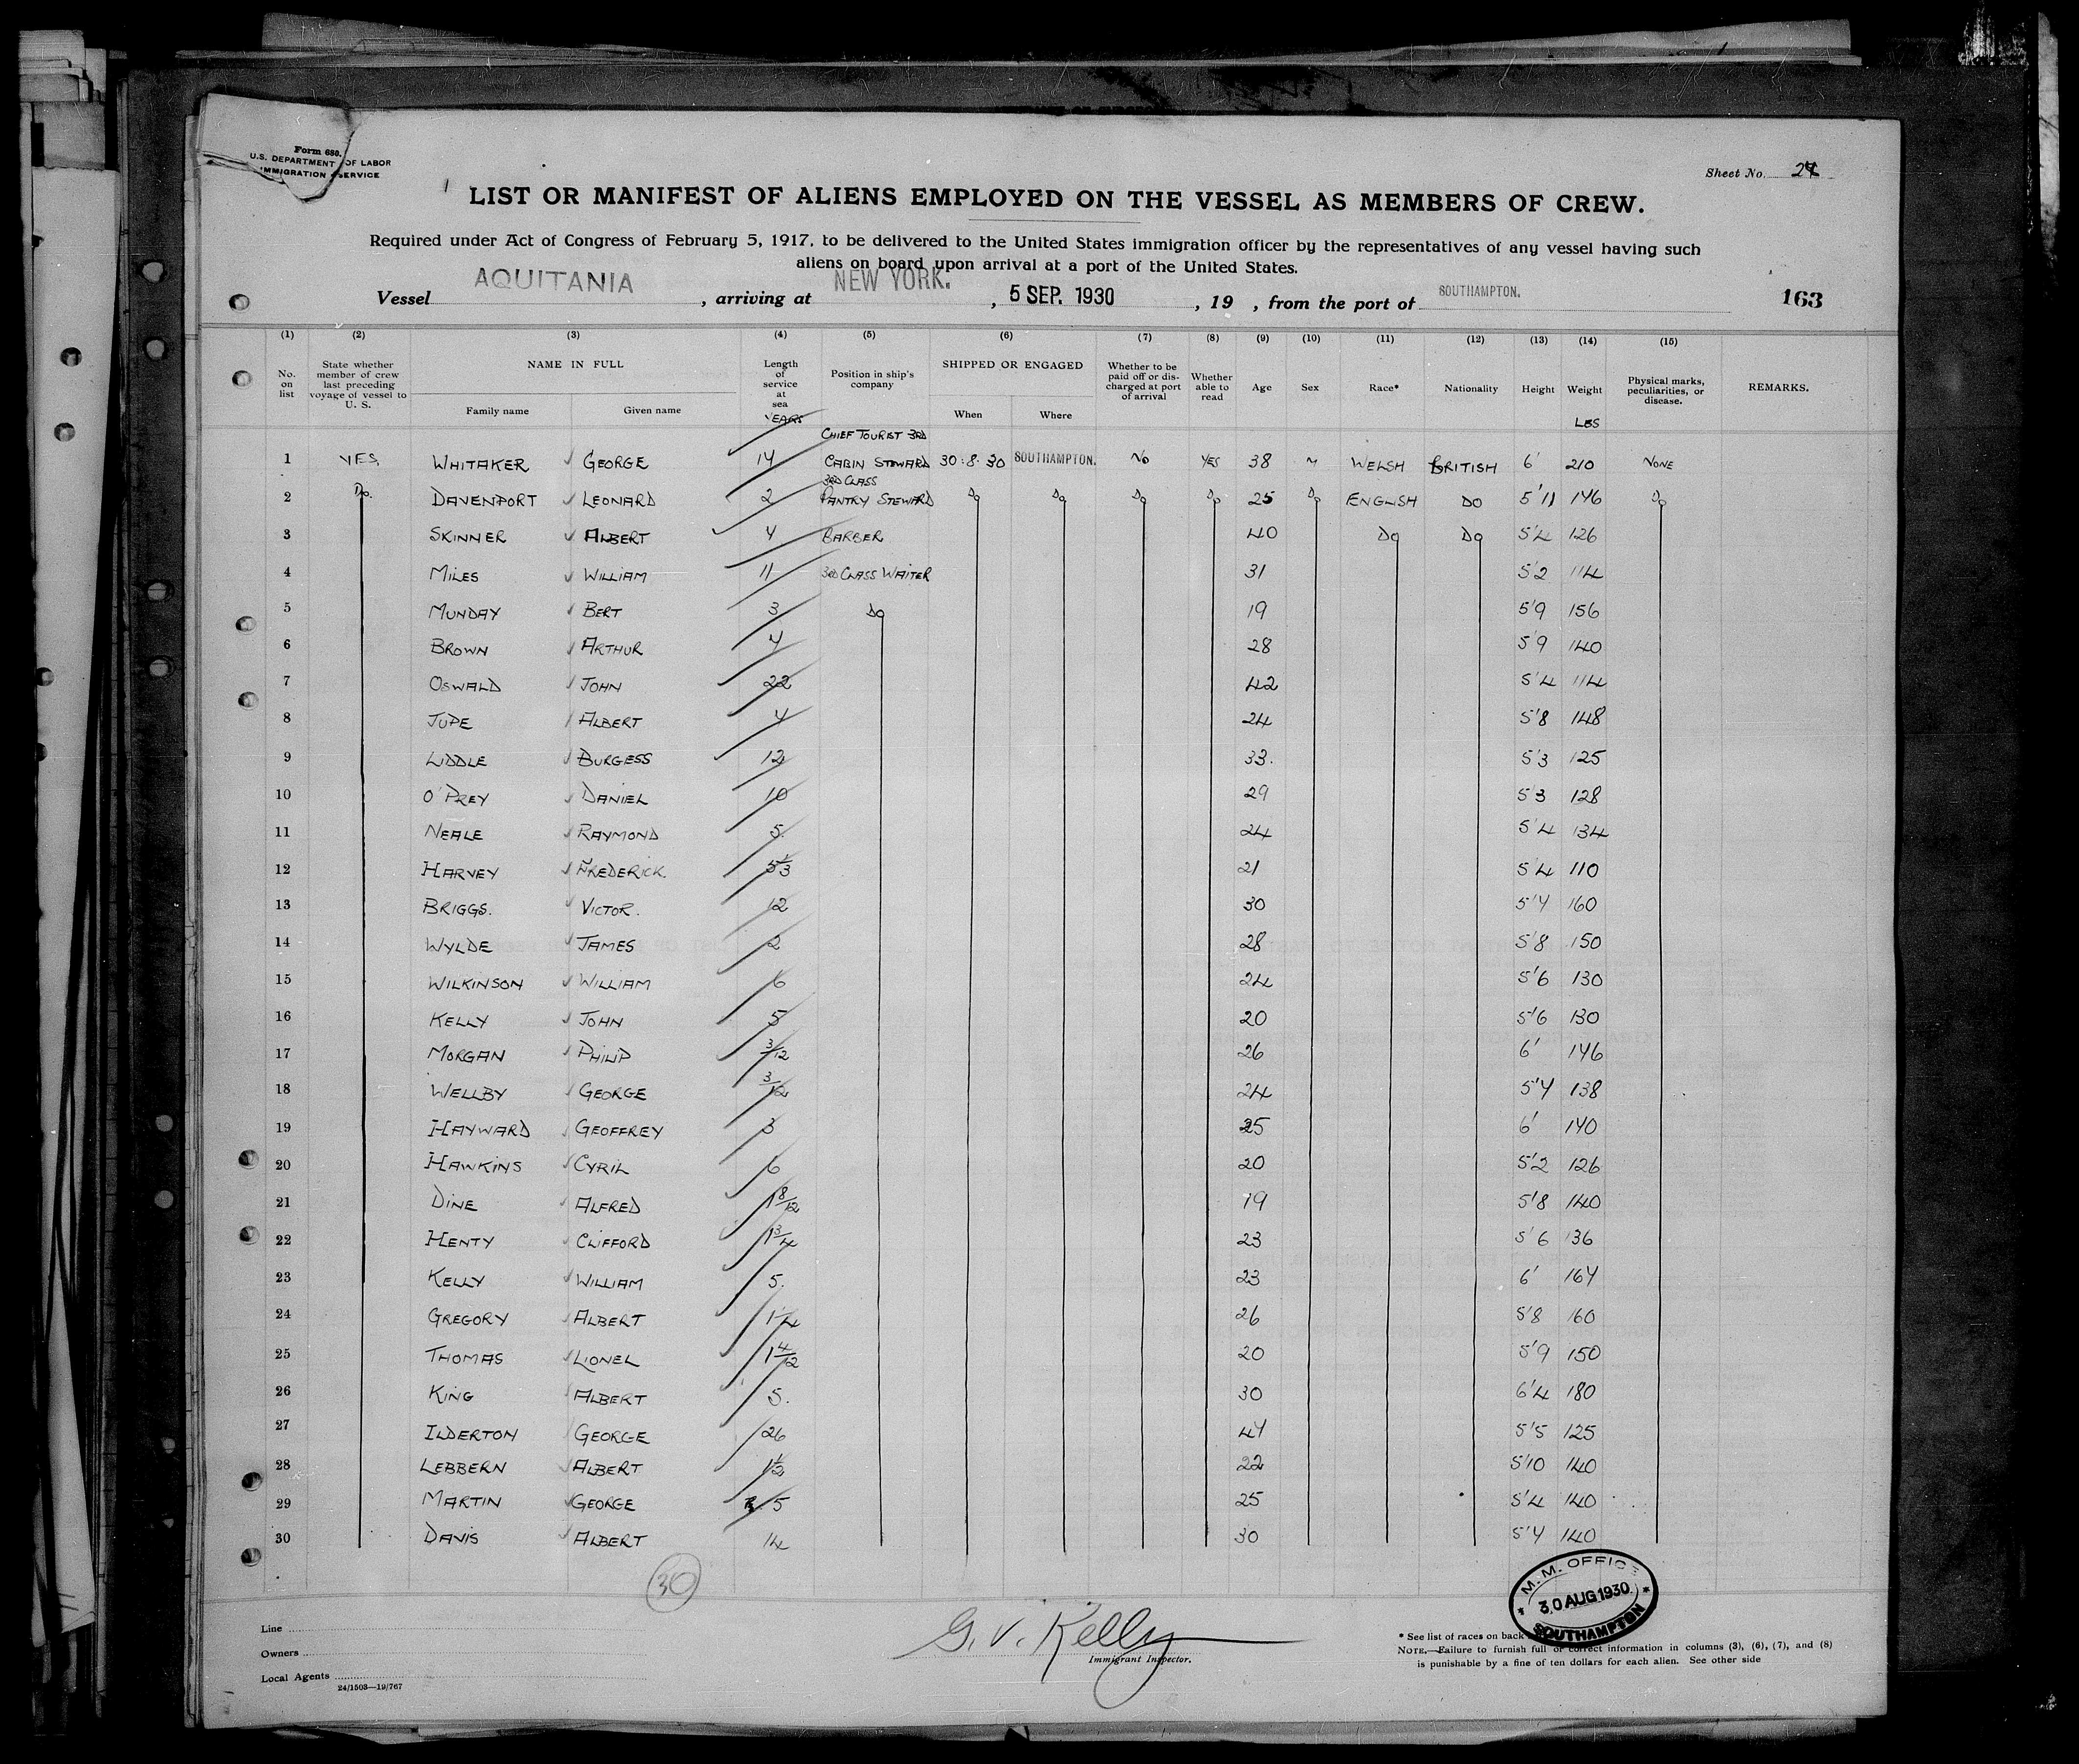 Form 680.
U.S. DEPARTMENT OF LABOR
IMMIGRATION SERVICE
Sheet No.
LIST OR MANIFEST OF ALIENS EMPLOYED ON THE VESSEL AS MEMBERS OF CREW.
Required under Act of Congress of February 5, 1917, to be delivered to the United States immigration officer by the representatives of any vessel having such
aliens on board upon arrival at a port of the United States.
Vessel AQUITANIA, arriving at NEW YORK., 5 SEP. 1930, 19 , from the port of SOUTHAMPTON. 163
(1) (2) (3) (4) (5) (6) (7) (8) (9) (10) (11) (12) (13) (14) (15)
No. on list State whether member of crew last preceding voyage of vessel to U. S. NAME IN FULL Family name Given name Length of service at sea YEARS Position in ship's company SHIPPED OR ENGAGED When Where Whether to be paid off or discharged at port of arrival Whether able to read Age Sex Race* Nationality Height Weight LBS Physical marks, peculiarities, or disease. REMARKS.
1 YES WHITAKER GEORGE 14 CHIEF TOURIST 3RD CABIN STEWARD 30.8.30 SOUTHAMPTON. NO YES 38 M WELSH BRITISH 6' 210 NONE
2 Do. DAVENPORT LEONARD 2 3RD CLASS PANTRY STEWARD Do Do Do Do 25 Do ENGLISH DO 5'11 146 Do
3 SKINNER ALBERT 4 BARBER 40 Do Do 5'4 126
4 MILES WILLIAM 11 3RD CLASS WAITER 31 5'2 114
5 MUNDAY BERT 3 Do 19 5'9 156
6 BROWN ARTHUR 4 28 5'9 140
7 OSWALD JOHN 22 42 5'4 114
8 JUPE ALBERT 4 24 5'8 148
9 LIDDLE BURGESS 12 33. 5'3 125
10 O'PREY DANIEL 10 29 5'3 128
11 NEALE RAYMOND 5. 24 5'4 134
12 HARVEY FREDERICK. 21 5'4 110
13 BRIGGS. VICTOR. 12 30 5'7 160
14 WYLDE JAMES 2 28 5'8 150
15 WILKINSON WILLIAM 6 24 5'6 130
16 KELLY JOHN 5 20 5'6 130
17 MORGAN PHILIP 3/12 26 6' 146
18 WELLBY GEORGE 3/12 24 5'7 138
19 HAYWARD GEOFFREY 3 25 6' 140
20 HAWKINS CYRIL 6 20 5'2 126
21 DINE ALFRED 1 8/12 19 5'8 140
22 HENTY CLIFFORD 1 3/4 23 5'6 136
23 KELLY WILLIAM 5. 23 6' 164
24 GREGORY ALBERT 1 1/4 26 5'8 160
25 THOMAS LIONEL 1 4/12 20 5'9 150
26 KING ALBERT 5. 30 6'4 180
27 ILDERTON GEORGE 26 47 5'5 125
28 LEBBERN ALBERT 22 5'10 140
29 MARTIN GEORGE 5 25 5'4 140
30 DAVIS ALBERT 14 30 5'7 140
30
M.M. OFFICE
30 AUG 1930
SOUTHAMPTON
Line
Owners
Local Agents
24/1503—19/767
G. V. Kelly
Immigrant Inspector.
* See list of races on back
NOTE.—Failure to furnish full or correct information in columns (3), (6), (7), and (8)
is punishable by a fine of ten dollars for each alien. See other side